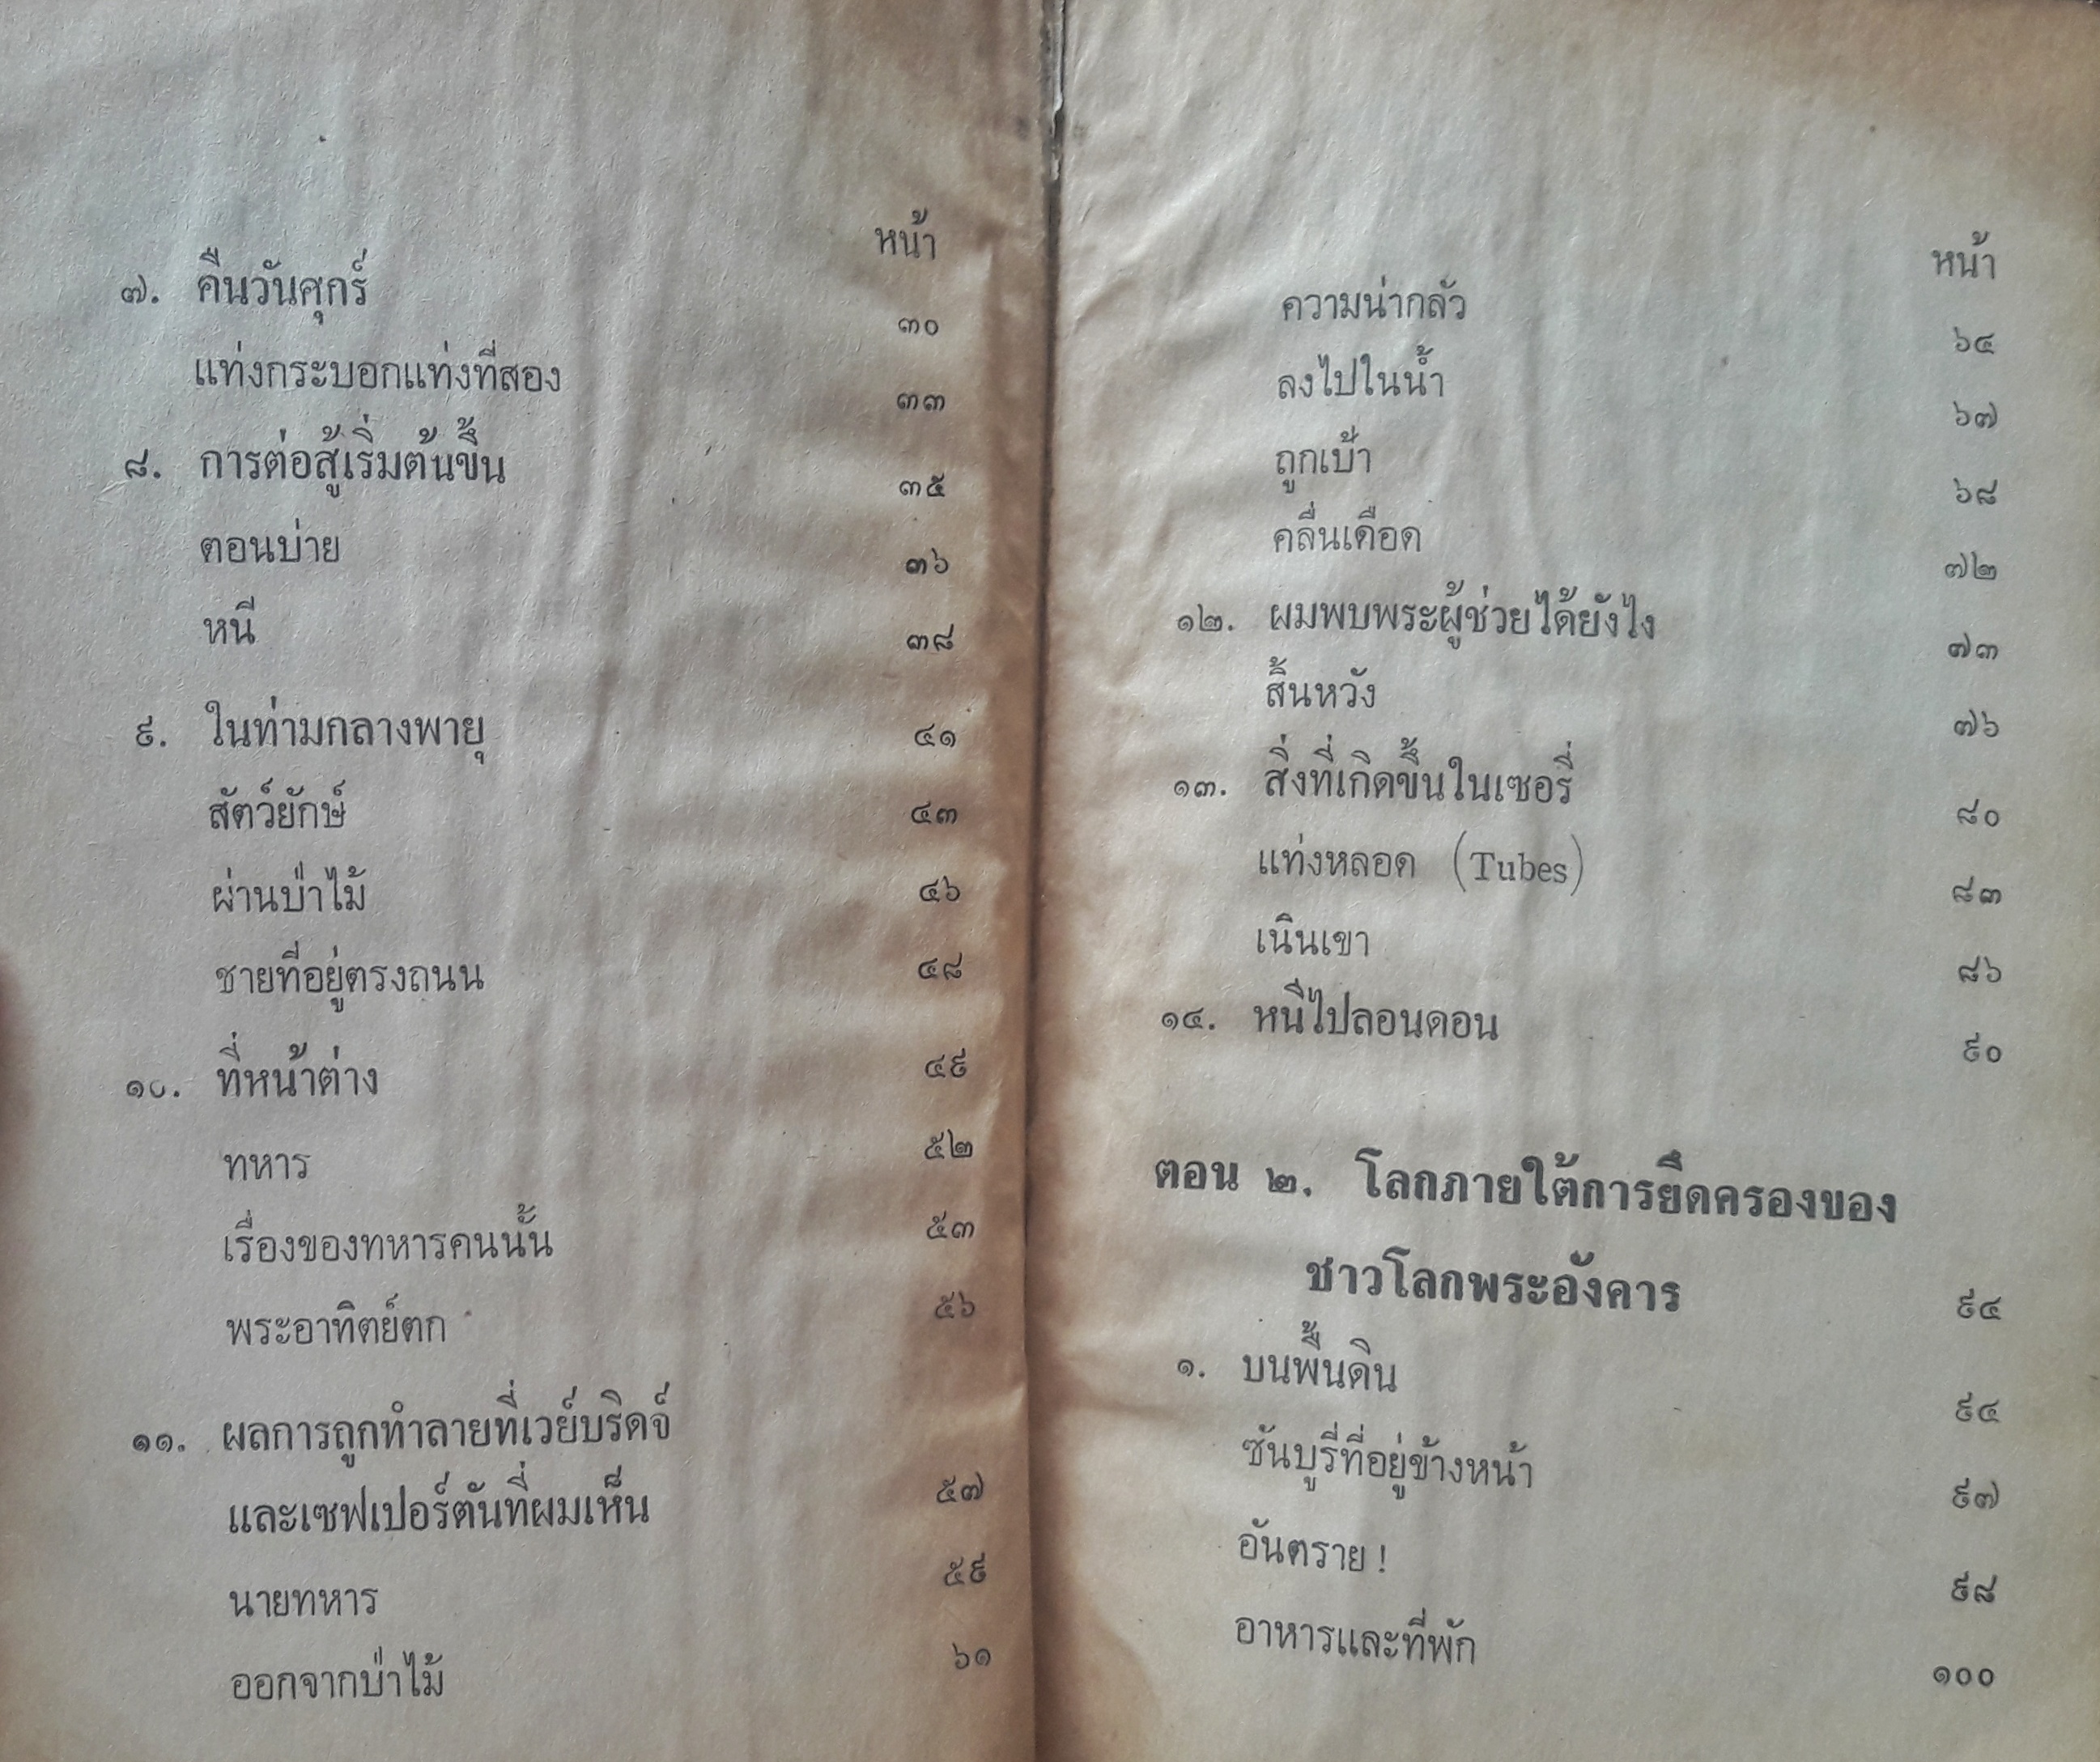 หน้า
๗. คืนวันศุกร์ ๓๐
แท่งกระบอกแท่งที่สอง ๓๓
๘. การต่อสู้เริ่มต้นขึ้น ๓๕
ตอนบ่าย ๓๖
หนี ๓๘
๙. ในท่ามกลางพายุ ๔๑
สัตว์ยักษ์ ๔๓
ผ่านป่าไม้ ๔๖
ชายที่อยู่ตรงถนน ๔๘
๑๐. ที่หน้าต่าง ๔๙
ทหาร ๕๒
เรื่องของทหารคนนั้น ๕๓
พระอาทิตย์ตก ๕๖
๑๑. ผลการถูกทำลายที่เวย์บริดจ์
และเซฟเปอร์ตันที่ผมเห็น ๕๗
นายทหาร ๕๙
ออกจากป่าไม้ ๖๑
หน้า
ความน่ากลัว ๖๔
ลงไปในน้ำ ๖๗
ถูกเป้า ๖๘
คลื่นเดือด ๗๒
๑๒. ผมพบพระผู้ช่วยได้ยังไง ๗๓
สิ้นหวัง ๗๖
๑๓. สิ่งที่เกิดขึ้นในเซอรี่ ๘๐
แท่งหลอด (Tubes) ๘๓
เนินเขา ๘๖
๑๔. หนีไปลอนดอน ๙๐
ตอน ๒. โลกภายใต้การยึดครองของ
ชาวโลกพระอังคาร ๙๔
๑. บนพื้นดิน ๙๔
ซันบูรี่ที่อยู่ข้างหน้า ๙๗
อันตราย ! ๙๘
อาหารและที่พัก ๑๐๐